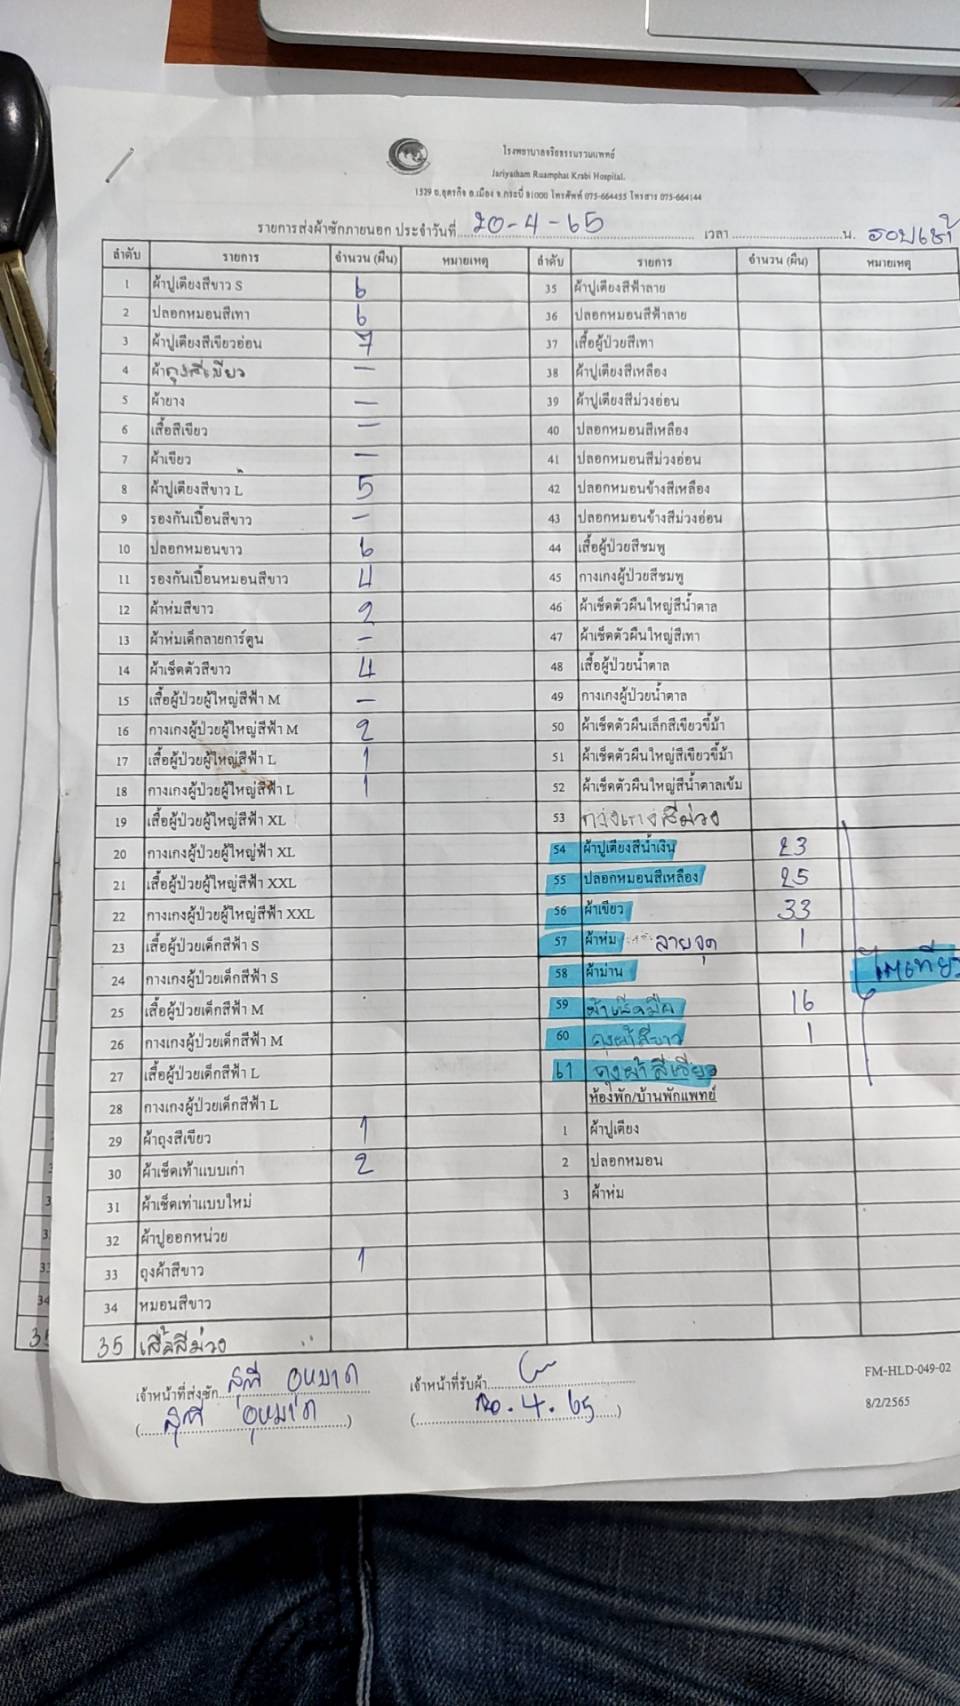 โรงพยาบาลจริยธรรมรวมแพทย์
Jariyatham Ruamphat Krabi Hospital.
1329 ถ.อุตรกิจ อ.เมือง จ.กระบี่ 81000 โทรศัพท์ 075-664455 โทรสาร 075-664144
รายการส่งผ้าซักภายนอก ประจำวันที่ 20-4-65 เวลา น. รอบเช้า
ลำดับ รายการ จำนวน (ผืน) หมายเหตุ ลำดับ รายการ จำนวน (ผืน) หมายเหตุ
1 ผ้าปูเตียงสีขาว S 6 35 ผ้าปูเตียงสีฟ้าลาย
2 ปลอกหมอนสีเทา 6 36 ปลอกหมอนสีฟ้าลาย
3 ผ้าปูเตียงสีเขียวอ่อน 7 37 เสื้อผู้ป่วยสีเทา
4 ผ้าถุงสีเขียว - 38 ผ้าปูเตียงสีเหลือง
5 ผ้ายาง - 39 ผ้าปูเตียงสีม่วงอ่อน
6 เสื้อสีเขียว - 40 ปลอกหมอนสีเหลือง
7 ผ้าเขียว - 41 ปลอกหมอนสีม่วงอ่อน
8 ผ้าปูเตียงสีขาว L 5 42 ปลอกหมอนข้างสีเหลือง
9 รองกันเปื้อนสีขาว - 43 ปลอกหมอนข้างสีม่วงอ่อน
10 ปลอกหมอนขาว 6 44 เสื้อผู้ป่วยสีชมพู
11 รองกันเปื้อนหมอนสีขาว 4 45 กางเกงผู้ป่วยสีชมพู
12 ผ้าห่มสีขาว 2 46 ผ้าเช็ดตัวผืนใหญ่สีน้ำตาล
13 ผ้าห่มเด็กลายการ์ตูน - 47 ผ้าเช็ดตัวผืนใหญ่สีเทา
14 ผ้าเช็ดตัวสีขาว 4 48 เสื้อผู้ป่วยน้ำตาล
15 เสื้อผู้ป่วยผู้ใหญ่สีฟ้า M - 49 กางเกงผู้ป่วยน้ำตาล
16 กางเกงผู้ป่วยผู้ใหญ่สีฟ้า M 2 50 ผ้าเช็ดตัวผืนเล็กสีเขียวขี้ม้า
17 เสื้อผู้ป่วยผู้ใหญ่สีฟ้า L 1 51 ผ้าเช็ดตัวผืนใหญ่สีเขียวขี้ม้า
18 กางเกงผู้ป่วยผู้ใหญ่สีฟ้า L 1 52 ผ้าเช็ดตัวผืนใหญ่สีน้ำตาลเข้ม
19 เสื้อผู้ป่วยผู้ใหญ่สีฟ้า XL 53 กางเกงสีม่วง
20 กางเกงผู้ป่วยผู้ใหญ่ฟ้า XL 54 ผ้าปูเตียงสีน้ำเงิน 23
21 เสื้อผู้ป่วยผู้ใหญ่สีฟ้า XXL 55 ปลอกหมอนสีเหลือง 25
22 กางเกงผู้ป่วยผู้ใหญ่สีฟ้า XXL 56 ผ้าเขียว 33
23 เสื้อผู้ป่วยเด็กสีฟ้า S 57 ผ้าห่ม ลายจุด 1
24 กางเกงผู้ป่วยเด็กสีฟ้า S 58 ผ้าม่าน ไตเทียม
25 เสื้อผู้ป่วยเด็กสีฟ้า M 59 ผ้าเช็ดมือ 16
26 กางเกงผู้ป่วยเด็กสีฟ้า M 60 ถุงผ้าสีขาว 1
27 เสื้อผู้ป่วยเด็กสีฟ้า L 61 ถุงผ้าสีเขียว
28 กางเกงผู้ป่วยเด็กสีฟ้า L ห้องพัก/บ้านพักแพทย์
29 ผ้าถุงสีเขียว 1 1 ผ้าปูเตียง
30 ผ้าเช็ดเท้าแบบเก่า 2 2 ปลอกหมอน
31 ผ้าเช็ดเท่าแบบใหม่ 3 ผ้าห่ม
32 ผ้าปูออกหน่วย
33 ถุงผ้าสีขาว 1
34 หมอนสีขาว
35 เสื้อสีม่วง
เจ้าหน้าที่ส่งซัก เจ้าหน้าที่รับผ้า FM-HLD-049-02
20.4.65 8/2/2565